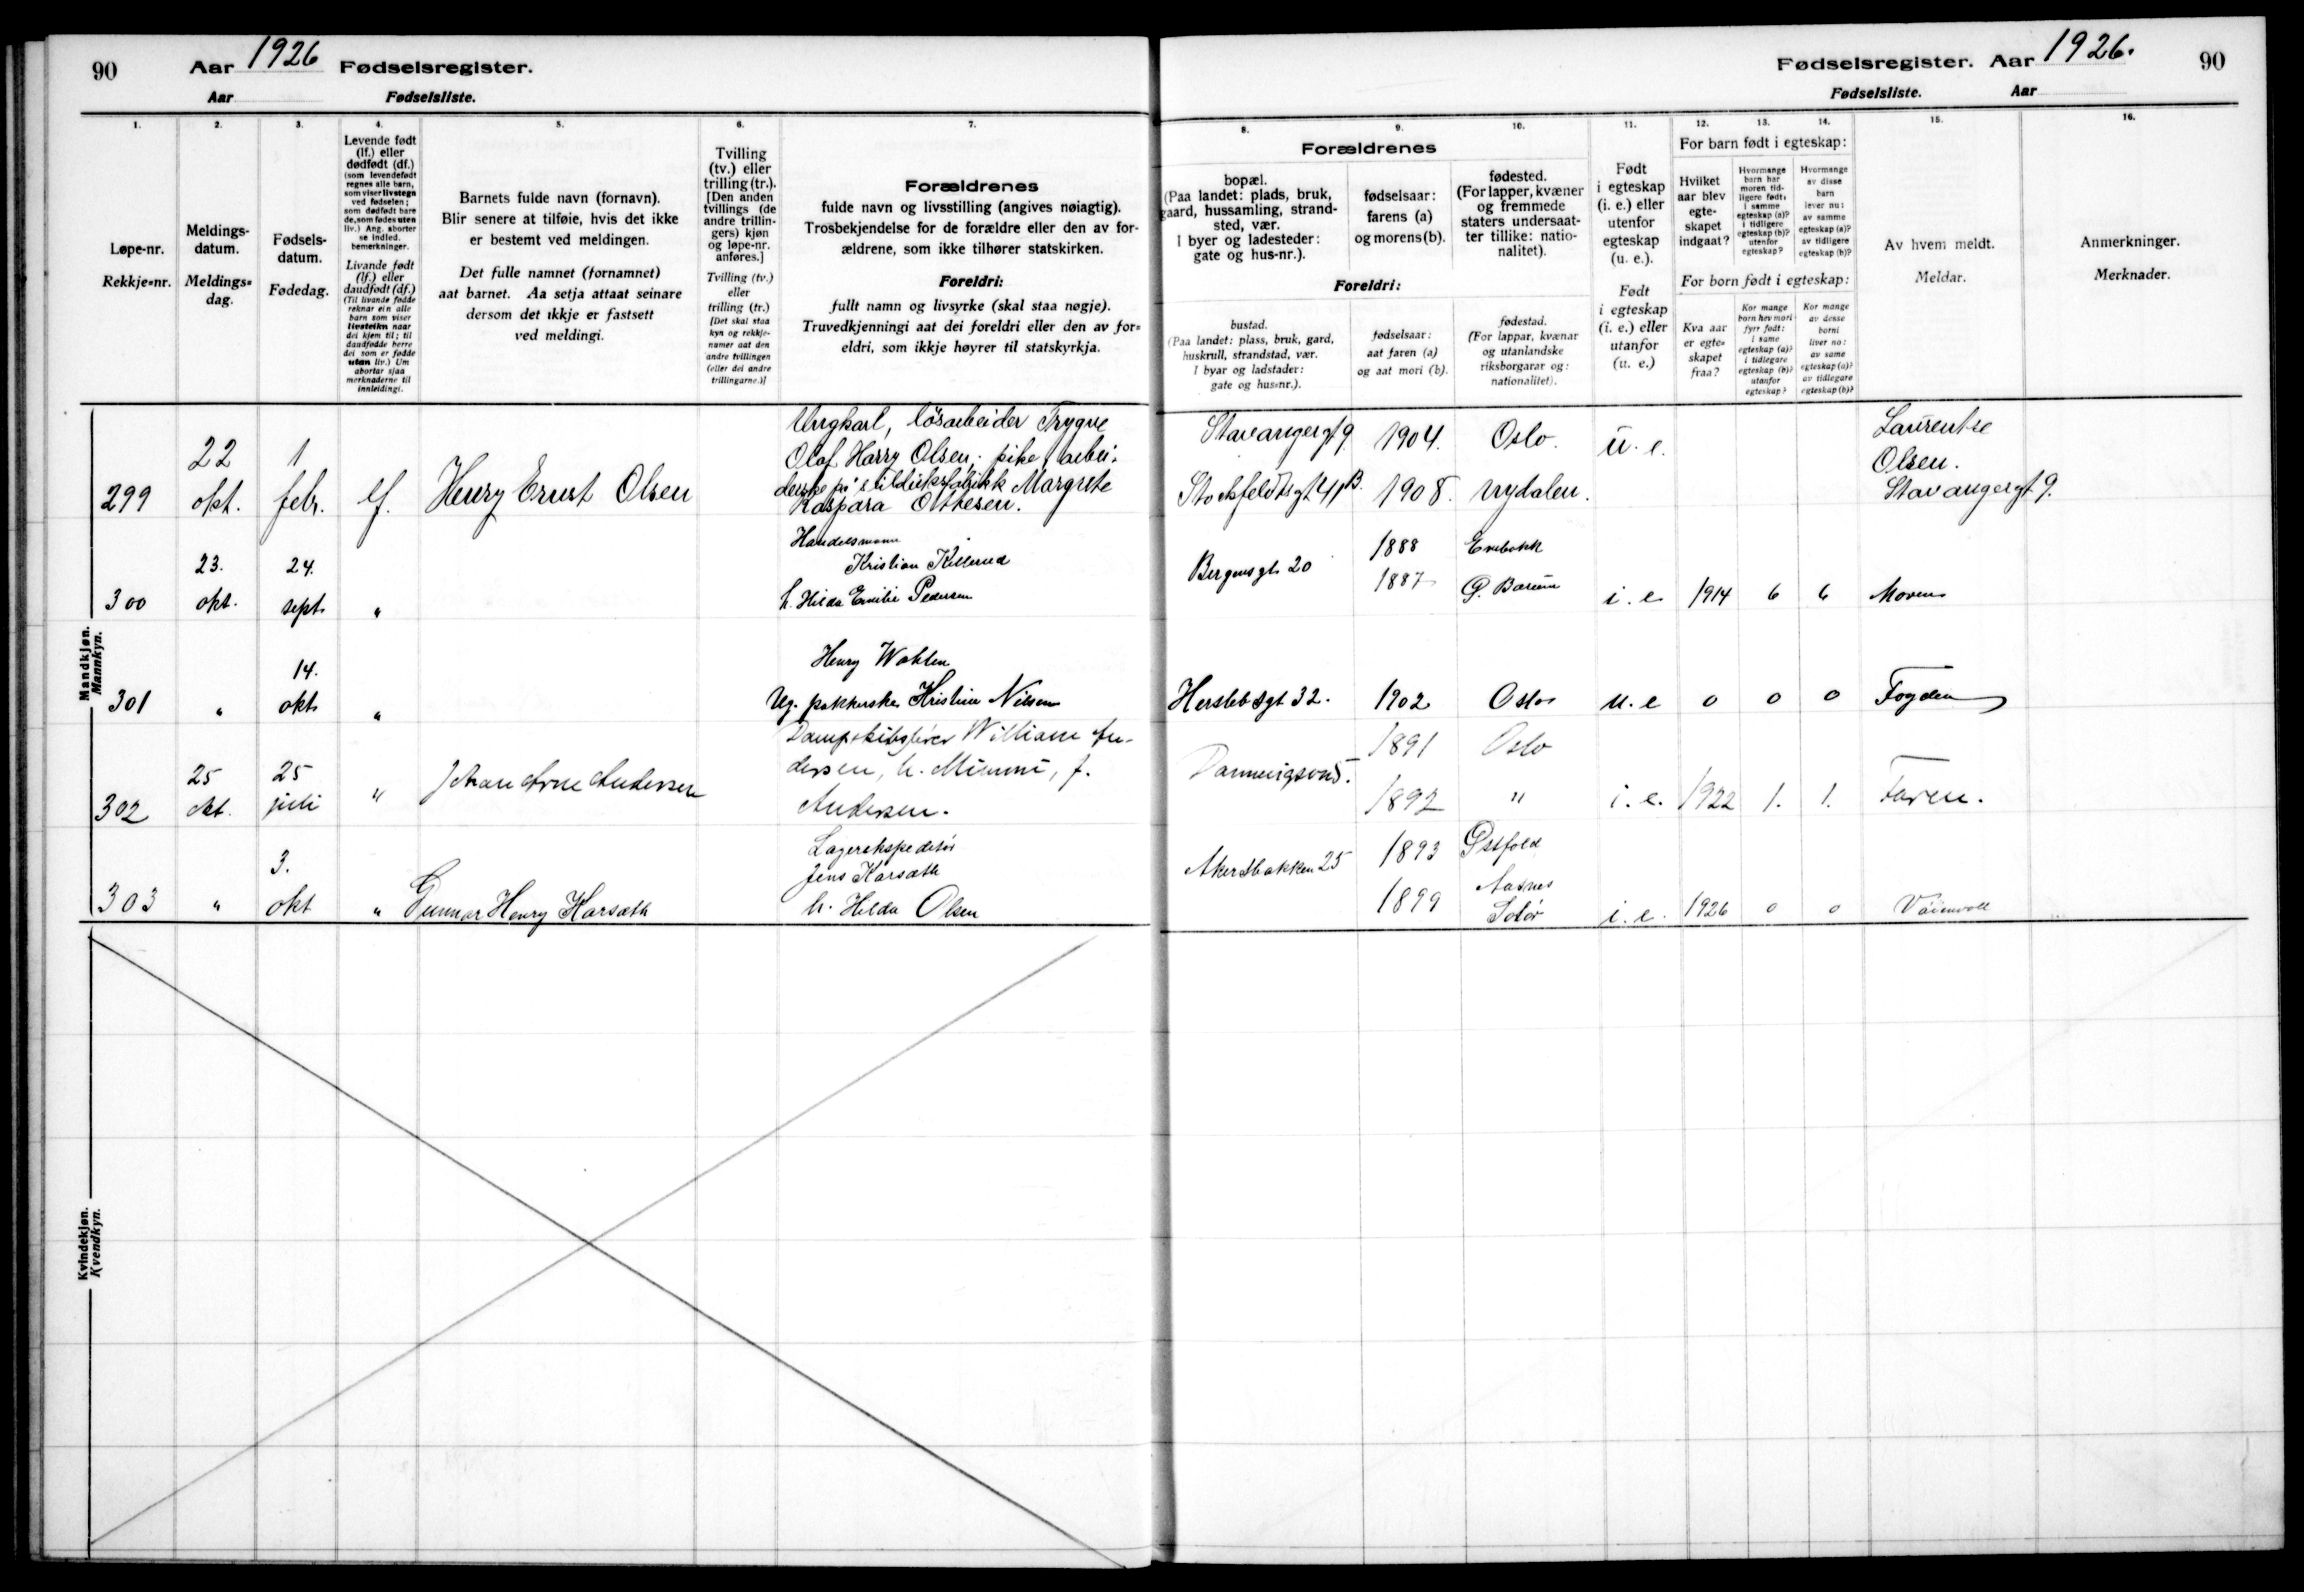 90
Aar 1926 Fødselsregister.
Aar Fødselsliste.
Fødselsregister. Aar 1926. 90
Fødselsliste. Aar
1. 2. 3. 4. 5. 6. 7.
Løpe-nr.
Rekkje=nr.
Meldings-
datum.
Meldings=
dag.
Fødsels-
datum.
Fødedag.
Levende født
(lf.) eller
dødfødt (df.)
(som levendefødt
regnes alle barn,
som viser livstegn
ved fødselen;
som dødfødt bare
de, som fødes uten
liv.) Ang. aborter
se indled.
bemerkninger.
Livande født
(lf.) eller
daudfødt (df.)
(Til livande fødde
reknar ein alle
barn som viser
livsteikn naar
dei kjem til; til
daudfødde berre
dei som er fødde
utan liv.) Um
abortar sjaa
merknaderne til
innleidingi.
Barnets fulde navn (fornavn).
Blir senere at tilføie, hvis det ikke
er bestemt ved meldingen.
Det fulle namnet (fornamnet)
aat barnet. Aa setja attaat seinare
dersom det ikkje er fastsett
ved meldingi.
Tvilling
(tv.) eller
trilling (tr.).
[Den anden
tvillings (de
andre trillin-
gers) kjøn
og løpe-nr.
anføres.]
Tvilling (tv.)
eller
trilling (tr.)
[Det skal staa
kyn og rekkje-
numer aat den
andre tvillingen
(eller dei andre
trillingarne.)]
Forældrenes
fulde navn og livsstilling (angives nøiagtig).
Trosbekjendelse for de forældre eller den av for-
ældrene, som ikke tilhører statskirken.
Foreldri:
fullt namn og livsyrke (skal staa nøgje).
Truvedkjenningi aat dei foreldri eller den av for=
eldri, som ikkje høyrer til statskyrkja.
8. 9. 10. 11. 12. 13. 14. 15. 16.
Forældrenes
bopæl.
(Paa landet: plads, bruk,
gaard, hussamling, strand-
sted, vær.
I byer og ladesteder:
gate og hus-nr.).
fødselsaar:
farens (a)
og morens (b).
fødested.
(For lapper, kvæner
og fremmede
staters undersaat-
ter tillike: natio-
nalitet).
Foreldri:
bustad.
(Paa landet: plass, bruk, gard,
huskrull, strandstad, vær.
I byar og ladstader:
gate og hus=nr.).
fødselsaar:
aat faren (a)
og aat mori (b).
fødestad.
(For lappar, kvænar
og utanlandske
riksborgarar og:
nationalitet).
Født
i egteskap
(i. e.) eller
utenfor
egteskap
(u. e.).
Født
i egteskap
(i. e.) eller
utanfor
(u. e.)
For barn født i egteskap:
Hvilket
aar blev
egte-
skapet
indgaat?
Hvormange
barn har
moren tid-
ligere født:
i samme
egteskap (a)?
i tidligere
egteskap (b)?
utenfor
egteskap?
Hvormange
av disse
barn
lever nu:
av samme
egteskap (a)?
av tidligere
egteskap (b)?
For born født i egteskap:
Kva aar
er egte=
skapet
fraa?
Kor mange
born hev mori
fyrr født:
i same
egteskap (a)?
i tidlegare
egteskap (b)?
utanfor
egteskap?
Kor mange
av desse
borni
liver no:
av same
egteskap (a)?
av tidlegare
egteskap (b)?
Av hvem meldt.
Meldar.
Anmerkninger.
Merknader.
Mandkjøn.
Mannkyn.
299 22 okt. 1 febr. lf. Henry Ernst Olsen
Ungkarl, løsarbeider Trygve
Olaf Harry Olsen, pike, arbei-
derske på Margrete
Kaspara Othesen.
Stavangergt 9. 1904. Oslo. u. e.
Stockfeldtsgt 41 B. 1908. Nydalen.
Laurentse
Olsen.
Stavangergt 9.
300 23. okt. 24. sept. "
Handelsmann
Kristian Killerud
h. Hilda Emilie Pedersen
Bergensgt 20 1888 Enebakk
1887 Ø. Bærum i. e 1914 6 6 Moren
301 " 14. okt. "
Henry Wahlen
Ug. pakkerske Kristine Nilsen
Herslebsgt 32. 1902 Oslo u. e 0 0 0 Fogden
302 25 okt. 25 juli " Johan Arne Andersen
William An-
dersen, h. Mimmi, f.
Andersen.
5. 1891 Oslo
1892 " i. e. 1922 1. 1. Faren.
303 " 3. okt " Gunnar Henry Karsæth
Lagerekspeditør
Jens Karsæth
h. Hilda Olsen
Akersbakken 25 1893 Østfold
1899 Aasnes
Solør i. e. 1926 0 0
Kvindekjøn.
Kvendkyn.